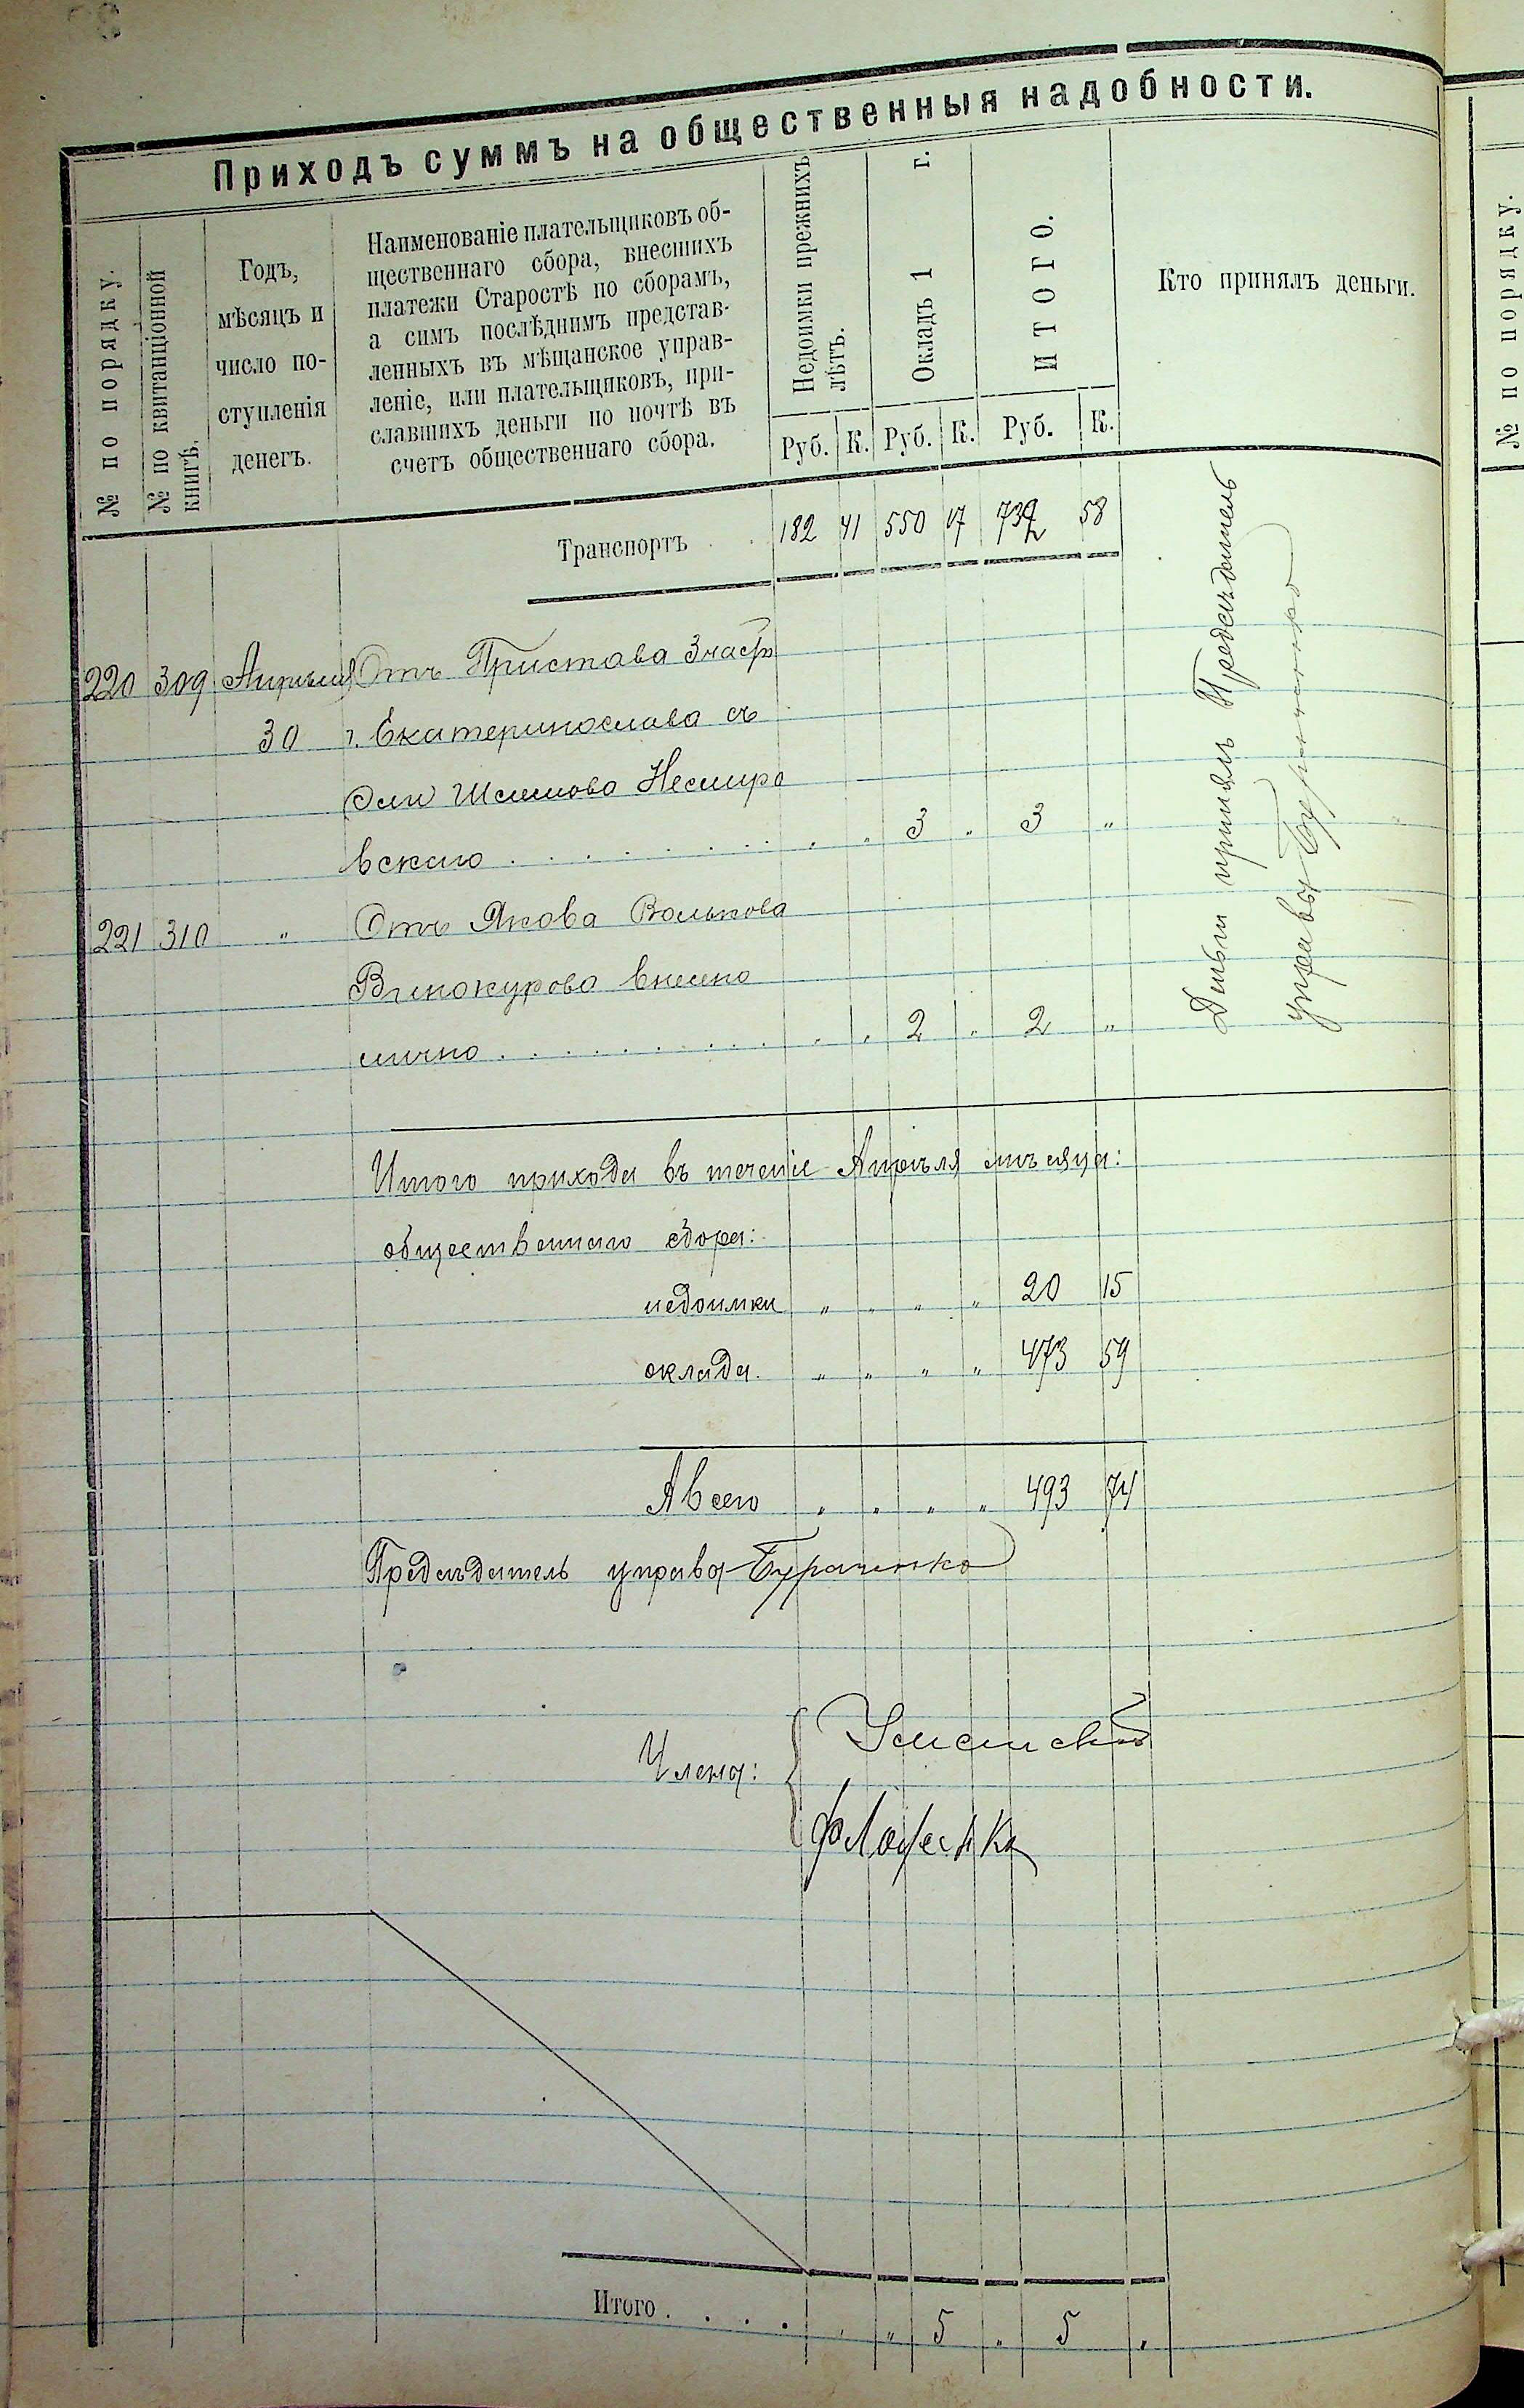 Приходъ суммъ на общественныя надобности.
№ по порядку.
№ по квитанціонной
книгѣ.
Годъ,
мѣсяцъ и
число по-
ступленія
денегъ.
Наименованіе плательщиковъ об-
щественнаго сбора, внесшихъ
платежи Старостѣ по сборамъ,
а симъ послѣднимъ представ-
ленныхъ въ мѣщанское управ-
леніе, или плательщиковъ, при-
славшихъ деньги по почтѣ въ
счетъ общественнаго сбора.
Недоимки прежнихъ
лѣтъ.
Окладъ 1 г.
ИТОГО.
Кто принялъ деньги.
Руб. К. Руб. К. Руб. К.
Транспортъ . . 182 41 550 17 732 58
220 309 Апрѣля Отъ Пристава 3 части
30 г. Екатеринослава съ
Немиро
вскаго . . . . . . . . . . „ 3 „ 3 „
221 310 „ Отъ Якова Волькова
Винокурова внесено
лично . . . . . . . . . . „ 2 „ 2 „
Деньги принялъ Предсѣдатель
управы Бураченко
Итого прихода въ теченіе Апрѣля мѣсяца:
общественнаго сбора:
недоимки „ „ „ „ 20 15
оклада. „ „ „ „ 473 59
А всего „ „ „ „ 493 74
Предсѣдатель управы Бураченко
Члены:
Итого . . . . „ „ 5 „ 5 „
№ по порядку.